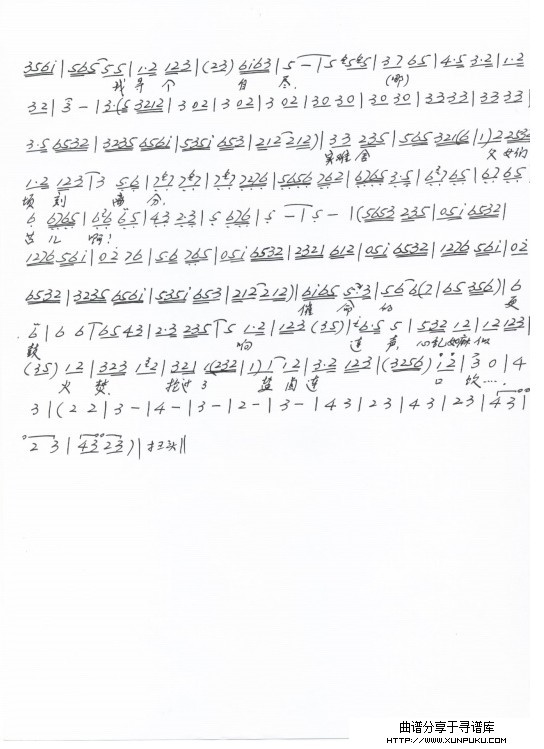 356i | 565 55 | 1·2 123 | (23) 6163 | 5 - | 5 #5#5 | 37 65 | 4·5 3·2 | 1·2
找寻个 自尽. (哪)
32 | 3 - | 3·(5 3212 | 3 02 | 3 02 | 3 02 | 30 30 | 30 30 | 3333 | 3333 |
3·5 6532 | 3235 656i | 535i 653 | 212 212) | 33 235 | 565 321(6 | 1) 2 2532
实难舍 父女们
1·2 123 | 3 56
顷刻 离分.
6 6765 43 2·3 | 5 676 | 5 - | 5 - | (5653 235 | 05i 6532 |
苦儿啊!
1276 56i | 02 76 | 56 765 | 05i 6532 | 2321 612 | 05i 6532 | 1276 56i | 02
6532 | 3235 656i | 535i 653 | 212 212) | 6165 5·3 | 56 6(7 | 65 356) | 6
催命的 更
6 | 6 6 | 65 43 | 2·3 235 | 5 1·2 | 123 (35) | 6·5 5 | 532 12 | 12 123 |
鼓 响 连声, 心乱如麻似
(35) 12 | 323 1 2 | 321 1(232 | 1) 1 12 | 3·2 123 | (3256) i2 | 3 0 | 4
火焚. 抢过 3 盐卤连 口饮……
3 | (2 2 | 3 - | 4 - | 3 - | 2 - | 3 - | 4 3 | 2 3 | 4 3 | 2 3 | 4 3 |
2 3 | 43 23) | 扫头 ||
曲谱分享于寻谱库
HTTP://WWW.XUNPUKU.COM